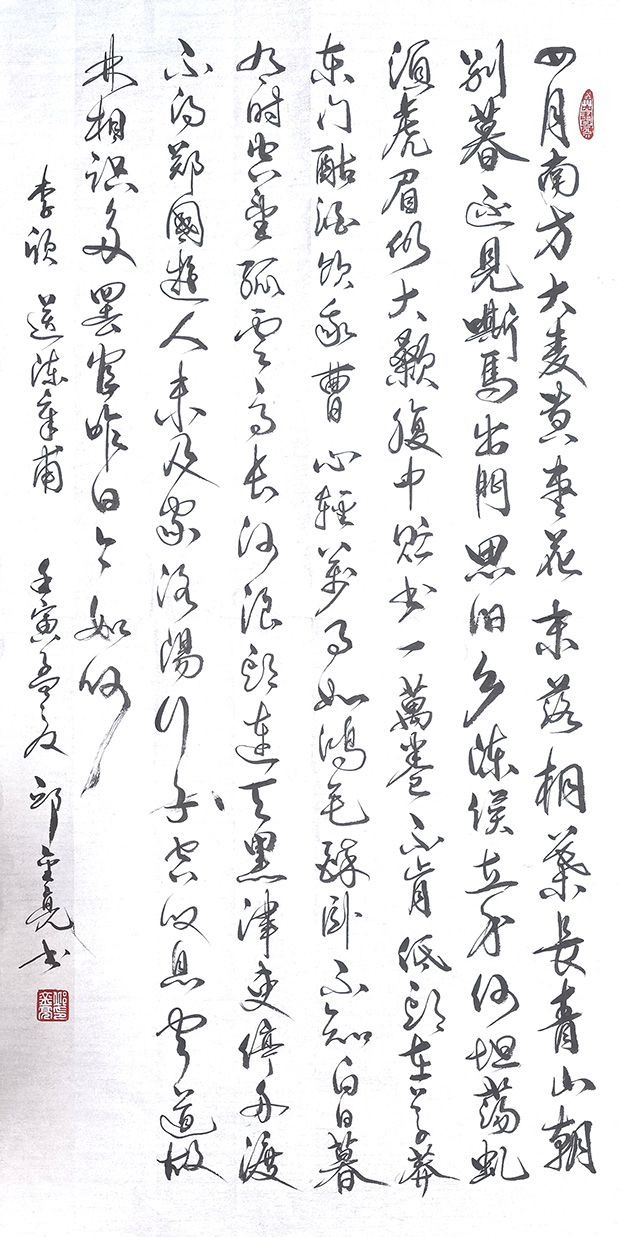 四月南方大麦黄枣花未落桐葉長青山朝
别暮还見嘶馬出門思旧乡陈侯立身何坦蕩虬
須虎眉仍大颡腹中贮书一萬卷不肯低头在草莽
东门酤酒饮我曹心轻萬事如鸿毛醉卧不知白日暮
有时空望孤云高长河浪头连天黑津吏停舟渡
不得郑國遊人未及家洛陽行子空叹息闻道故
林相识多罢官昨日今如何
李颀 送陈章甫 壬寅孟夏 邱金亮书